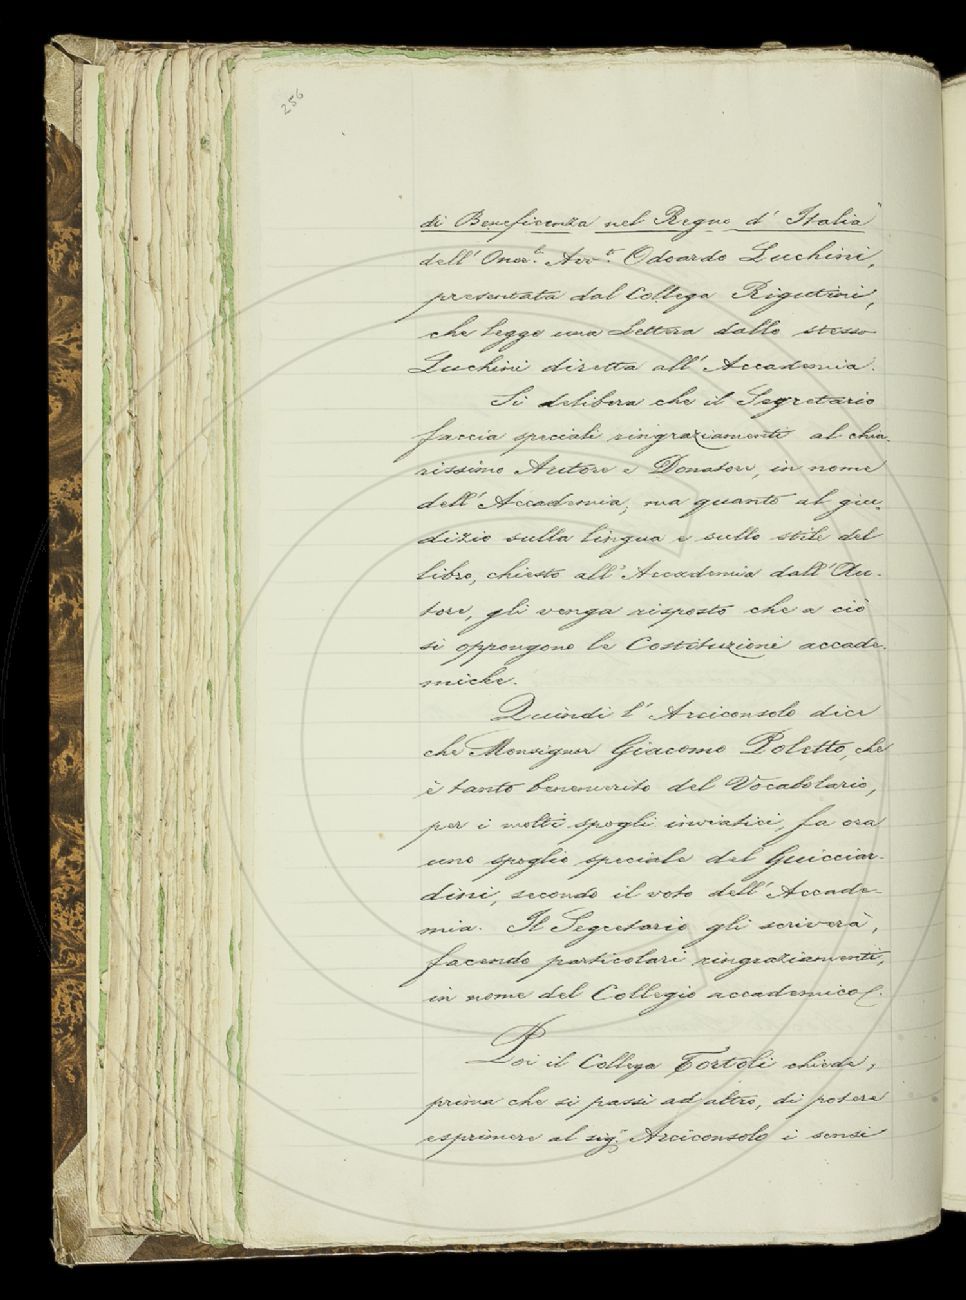 256
di Beneficenza nel Regno d' Italia"
dell' Onor.e Avv.to Odoardo Luchini,
presentata dal Collega Rigutini,
che legge una Lettera dallo stesso
Luchini diretta all' Accademia.
Si delibera che il Segretario
faccia speciali ringraziamenti al chia-
rissimo Autore e Donatore, in nome
dell' Accademia; ma quanto al giu-
dizio sulla lingua e sullo stile del
libro, chiesto all' Accademia dall' Au-
tore, gli venga risposto che a ciò
si oppongono le Costituzioni accade-
miche.
Quindi l' Arciconsolo dice
che Monsignor Giacomo Poletto, che
è tanto benemerito del Vocabolario,
per i molti spogli inviatici, fa ora
uno spoglio speciale del Guicciar-
dini, secondo il voto dell' Accade-
mia. Il Segretario gli scriverà,
facendo particolari ringraziamenti,
in nome del Collegio accademico.
Poi il Collega Tortoli chiede,
prima che si passi ad altro, di potere
esprimere al sig.r Arciconsolo i sensi